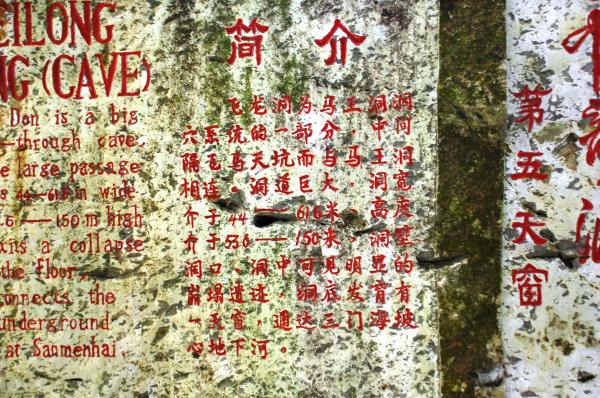 EILONG
NG (CAVE)
Don is a big
through cave.
large passage
44—61.6 m wide
.6—150 m high
a collapse
the floor,
the
underground
at Sanmenhai.
简介
飞龙洞为马王洞洞
穴系统的一部分,中间
隔飞马天坑而与马王洞
相连。洞道巨大,洞宽
介于44—61.6米,高度
介于53.6—150米,洞壁
洞口、洞中可见明显的
崩塌遗迹,洞底发育有
一天窗,通达三门海坡
心地下河。
第五天窗